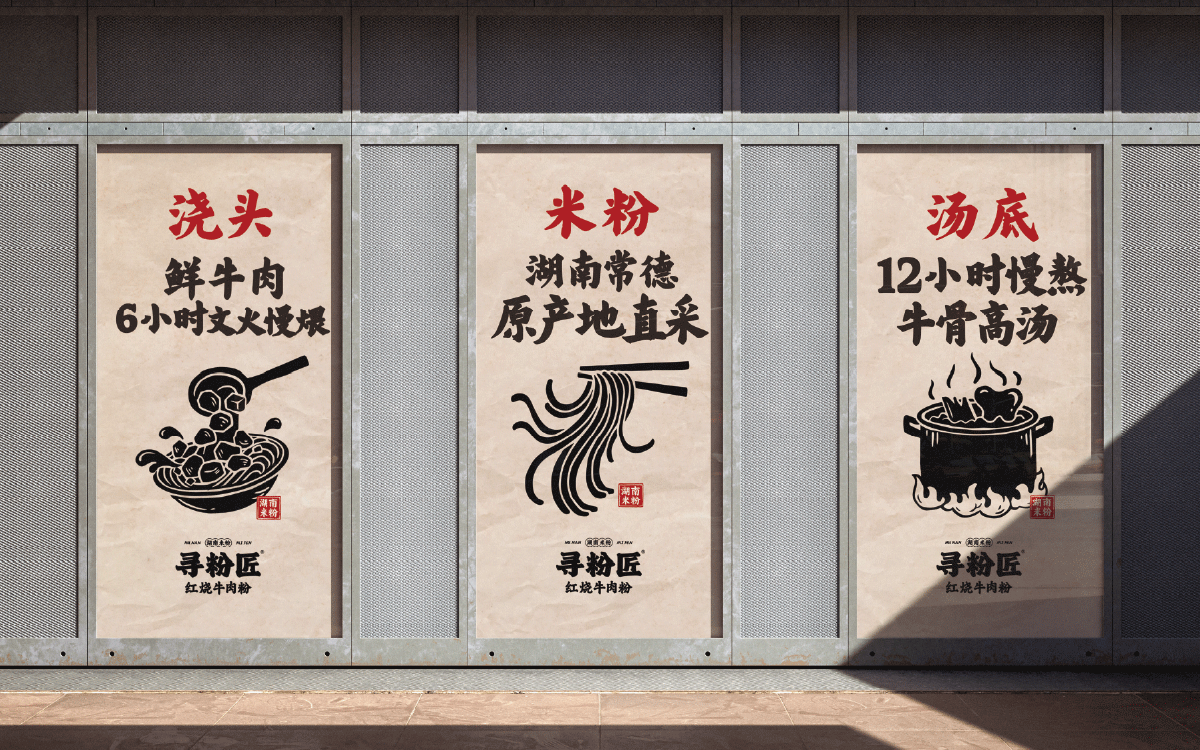 浇头
鲜牛肉
6小时文火慢煨
湖南
米粉
HU NAN 湖南米粉 MI FEN
寻粉匠®
红烧牛肉粉
米粉
湖南常德
原产地直采
湖南
米粉
HU NAN 湖南米粉 MI FEN
寻粉匠®
红烧牛肉粉
汤底
12小时慢熬
牛骨高汤
湖南
米粉
HU NAN 湖南米粉 MI FEN
寻粉匠®
红烧牛肉粉